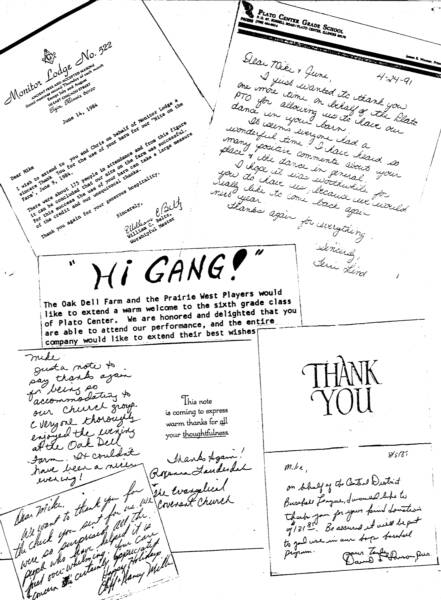 Monitor Lodge No. 522
Elgin, Illinois
June 14, 1986
Dear Mike
I wish to extend to you and Chris on behalf of Monitor Lodge
thank you for the use of your barn for our
June 1986.
There were about 175 people in attendance and from this figure
it can be concluded that our
for this success the use of your barn can take a large measure
of the credit and our unequivocal thanks.
Thank you again for your generous hospitality.
Sincerely,
William C.
William C.
Worshipful Master
PLATO CENTER GRADE SCHOOL
PLATO CENTER, ILLINOIS
4-24-91
Dear Mike & June,
I just wanted to thank you
one more time on behalf of the Plato
PTO for allowing us to have our
dance in your barn.
It seems everyone had a
wonderful time. I have heard so
many positive comments about your
place & the dance in general.
I hope it was worthwhile for
you to have us, because we would
really like to come back again
next year.
Thanks again for everything
Sincerely,
Terri Lind
"HI GANG!"
The Oak Dell Farm and the Prairie West Players would
like to extend a warm welcome to the sixth grade class
of Plato Center. We are honored and delighted that you
are able to attend our performance, and the entire
company would like to extend their best wishes
Mike
Just a note to
say thanks again
for being so
accommodating to
our Church group.
Everyone thoroughly
enjoyed the evening
at the Oak Dell
Farm. It couldn't
have been a nicer
evening!
This note
is coming to express
warm thanks for all
your thoughtfulness.
Thanks Again!
Roxanna
The Evangelical
Covenant Church
THANK
YOU
Mike,
On behalf of the Central District
Baseball League, I would like to
thank you for your fine donation
of Be assured it will be put
to good use in our
program.
Yours Truly,
David
Dear Mike,
We want to thank you for
the check you sent for us! We
were so surprised! All the
people who have helped it is
just overwhelming. Your care
& concern is certainly appreciated
Happy Holidays
Jeff & Nancy Miller